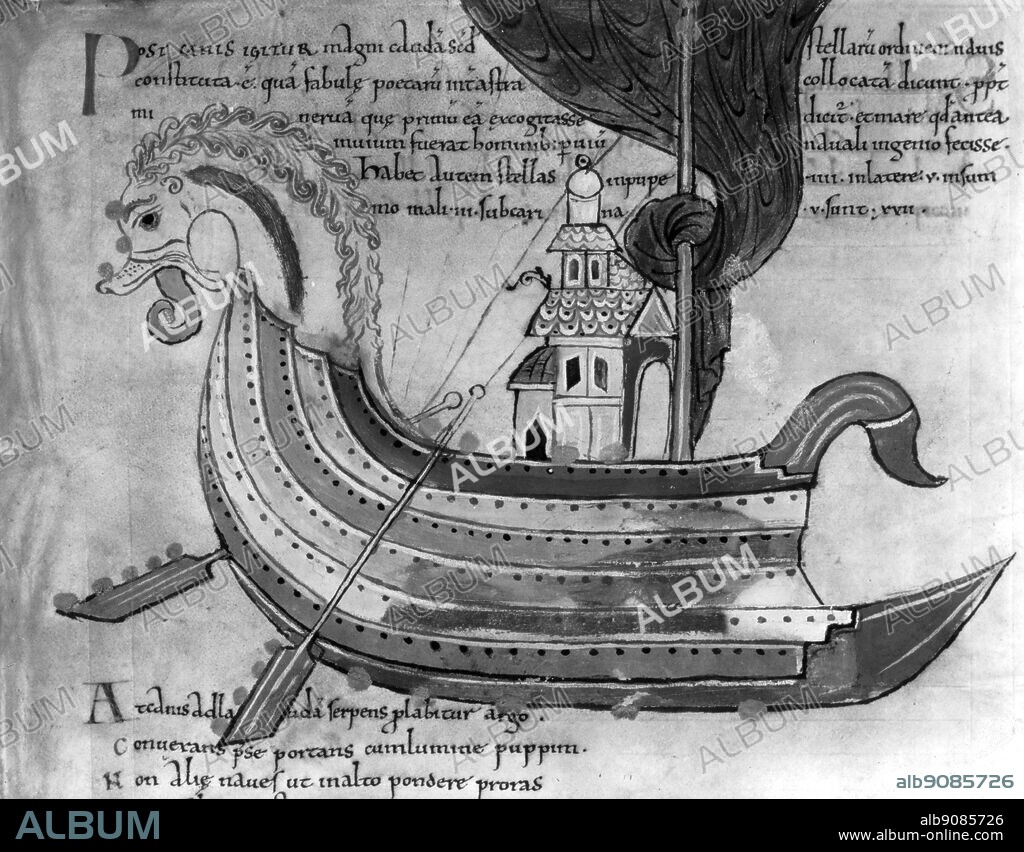 Post canis igitur magni caudā sed stellarū ordinem nauis
constituta · ē · quā fabulę poetarū int̄ astra collocatā dicunt · ppt̄
mi neruā quę primū eā excogitasse dicit̄ · et mare qd̄ antea
inuium fuerat hominib: puiū nauali ingenio fecisse ·
habet autem stellas in puppe · iiii · in latere · v · in sum
mo mali · iii · sub cari na · v · sunt · xvii ·
At canis ad serpens plabitur argo
Conuerans pse portans cum lumine puppim ·
Non alię naues ut in alto pondere proras
ALBUM
alb9085726
ALBUM
alb9085726
www.album-online.com